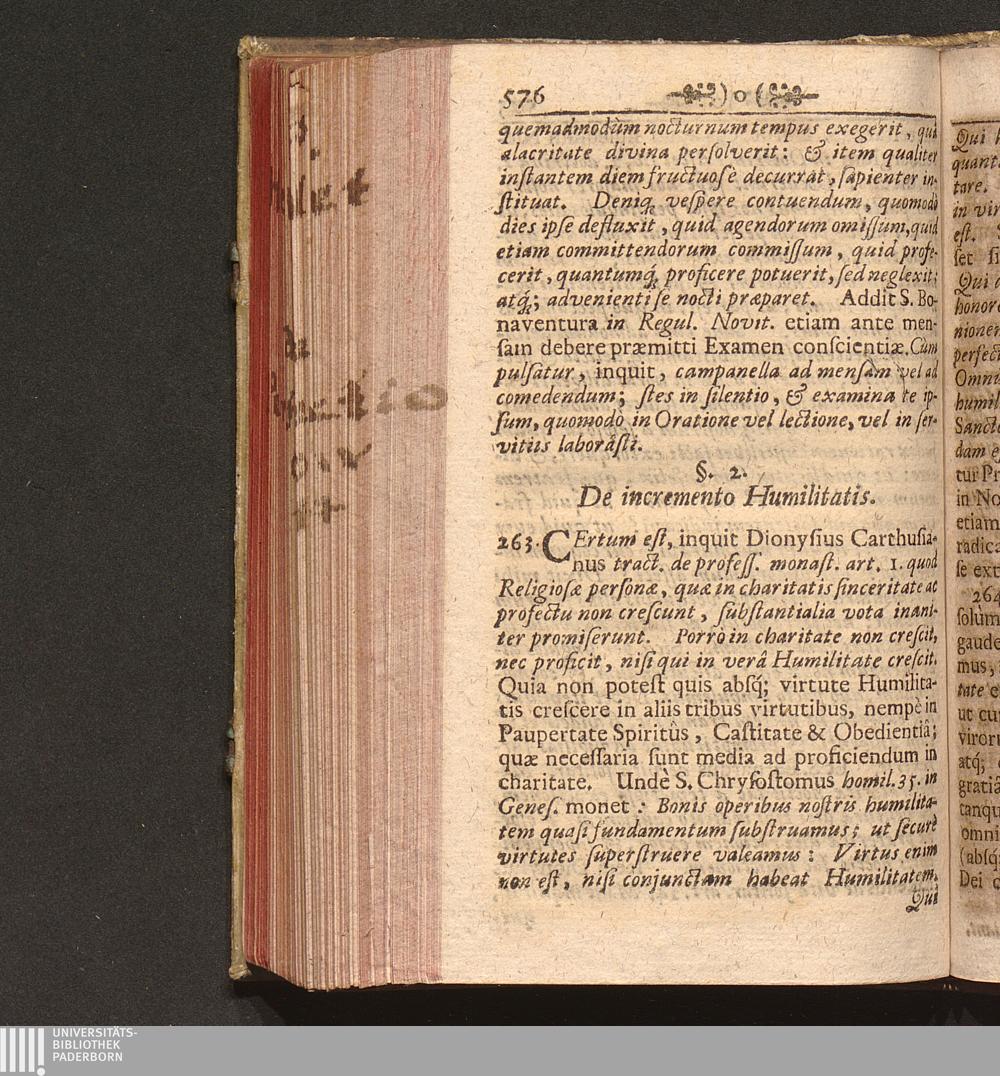 576 ) o (
quemadmodùm nocturnum tempus exegerit, qui
alacritate divina persolverit: & item qualiter
instantem diem fructuosè decurrat, sapienter in-
stituat. Deniq; vespere contuendum, quomodò
dies ipse defluxit, quid agendorum omissum, quid
etiam committendorum commissum, quid profe-
cerit, quantumq́; proficere potuerit, sed neglexit;
atq́; advenienti se nocti præparet. Addit S. Bo-
naventura in Regul. Novit. etiam ante men-
sam debere præmitti Examen conscientiæ. Cùm
pulsatur, inquit, campanella ad mensam vel ad
comedendum; stes in silentio, & examina te ip-
sum, quomodo in Oratione vel lectione, vel in ser-
vitiis laborâsti.
§. 2.
De incremento Humilitatis.
263. CErtum est, inquit Dionysius Carthusia-
nus tract. de profess. monast. art. 1. quod
Religiosæ personæ, quæ in charitatis sinceritate ac
profectu non crescunt, substantialia vota inani-
ter promiserunt. Porrò in charitate non crescit,
nec proficit, nisi qui in verâ Humilitate crescit.
Quia non potest quis absq́; virtute Humilita-
tis crescere in aliis tribus virtutibus, nempè in
Paupertate Spiritûs, Castitate & Obedientiâ;
quæ necessaria sunt media ad proficiendum in
charitate. Undè S. Chrysostomus homil. 35. in
Genes. monet: Bonis operibus nostris humilita-
tem quasi fundamentum substruamus; ut securè
virtutes superstruere valeamus: Virtus enim
non est, nisi conjunctam habeat Humilitatem.
Qui
Qui
quant
tare.
in vir
est.
set si
Qui
honor
nionem
perfect
Omni
humil
Sancto
dam
tur Pr
in No
etiam
radica
se ext
264
solùm
gaude
mus,
tate e
ut cu
viroru
atq́;
gratiâ
tanqu
omni
(absq́;
Dei
UNIVERSITÄTS-
BIBLIOTHEK
PADERBORN